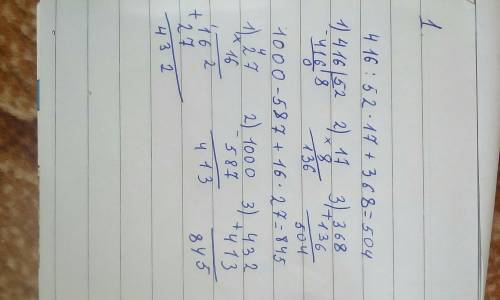 1.
416 : 52 · 17 + 368 = 504
1) 416 | 52   2) 17   3) 368
- 416 | 8   × 8   + 136
0   136   504
1000 - 587 + 16 · 27 = 845
1) 27   2) 1000   3) 432
4
× 16   - 587   + 413
162   413   845
+ 27
432